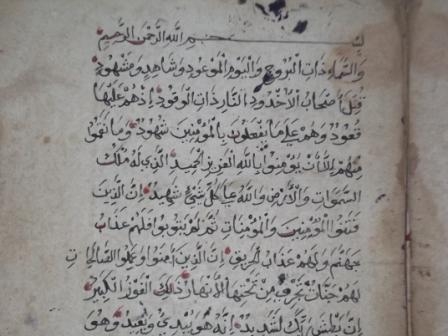 بسم الله الرحمن الرحيم
والسماء ذات البروج واليوم الموعود وشاهد ومشهود
قتل أصحاب الأخدود النار ذات الوقود إذ هم عليها
قعود وهم على ما يفعلون بالمؤمنين شهود وما نقموا
منهم إلا أن يؤمنوا بالله العزيز الحميد الذي له ملك
السموات والأرض والله على كل شيء شهيد إن الذين
فتنوا المؤمنين والمؤمنات ثم لم يتوبوا فلهم عذاب
جهنم ولهم عذاب الحريق إن الذين آمنوا وعملوا الصالحات
لهم جنات تجري من تحتها الأنهار ذلك الفوز الكبير
إن بطش ربك لشديد إنه هو يبدئ ويعيد وهو